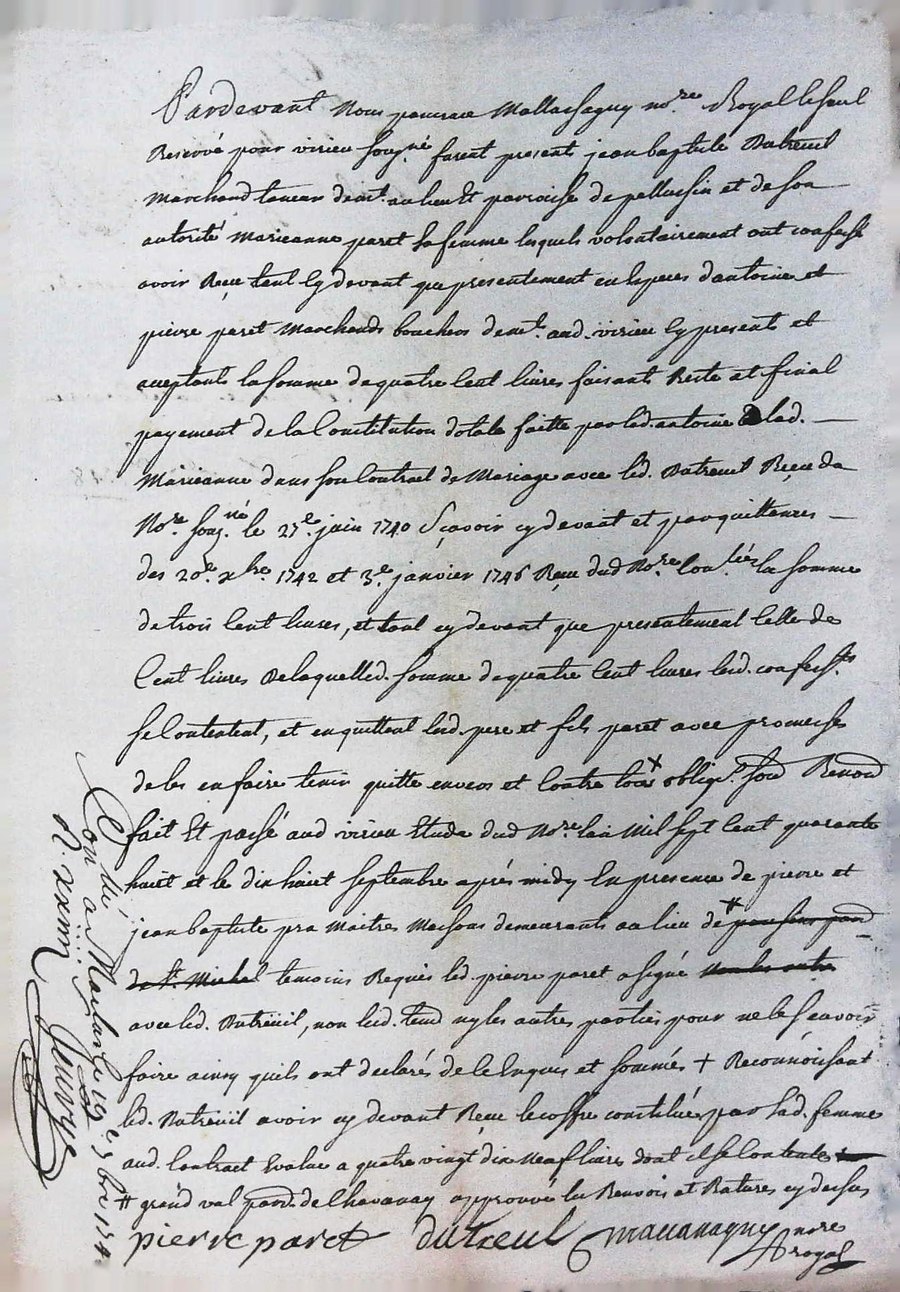 Pardevant Nous pancrace Mallassagny no.re Royal le seul
Reservé pour virieu soug.né furent presents jean baptiste Dutreuil
Marchand taneur dem.t au lieu Et parroisse de pellussin et de son
autorité Marieanne paret sa femme lesquels volontairement ont confessé
avoir Reçu tant Cy devant que presentement en especes d'antoine et
pierre paret Marchands bouchers dem.t aud. virieu Cy presents et
acceptants la somme de quatre Cent livres faisants Reste et final
payement de la Constitution dotale faitte par led. antoine a lad.
Marieanne dans son Contract de Mariage avec led. Dutreuil Reçu du
No.re soug.né le 27.e juin 1740 Sçavoir cy devant et par quittances
des 20.e xbre. 1742 et 3.e janvier 1746 Reçu dud No.re la somme
de trois Cent livres, et tant cy devant que presentement Celle de
Cent livres De laquelle d. somme de quatre Cent livres lesd. confess.ts
se Contentent, et en quittent lesd. pere et fils paret avec promesses
de les en faire tenir quitte envers et Contre tous + oblig.s soub Renon
fait Et passé aud virieu Etude dud No.re l'an Mil sept Cent quarante
huit et le dix huit septembre après midy En presence de pierre et
jean baptiste pra Maitres Massons demeurants au lieu de #
de S.t Michel temoins Requis led. pierre paret a signé Non les autre
avec led. Dutreüil, non lesd. tem. ny les autres parties pour ne le sçavoir
faire ainsy quils ont déclarés de ce Enquis et sommés + Reconnoissant
led. Dutreüil avoir cy devant Reçu le coffre constitué par sad. femme
aud. Contract Evalué a quatre vingt dix Neuf livres dont il se Contente
# grand val par. de Chavanay approuvé les Renvois et Ratures cy dessus
pierre paret dutreul Mallassagny no.re royal
Con.llé